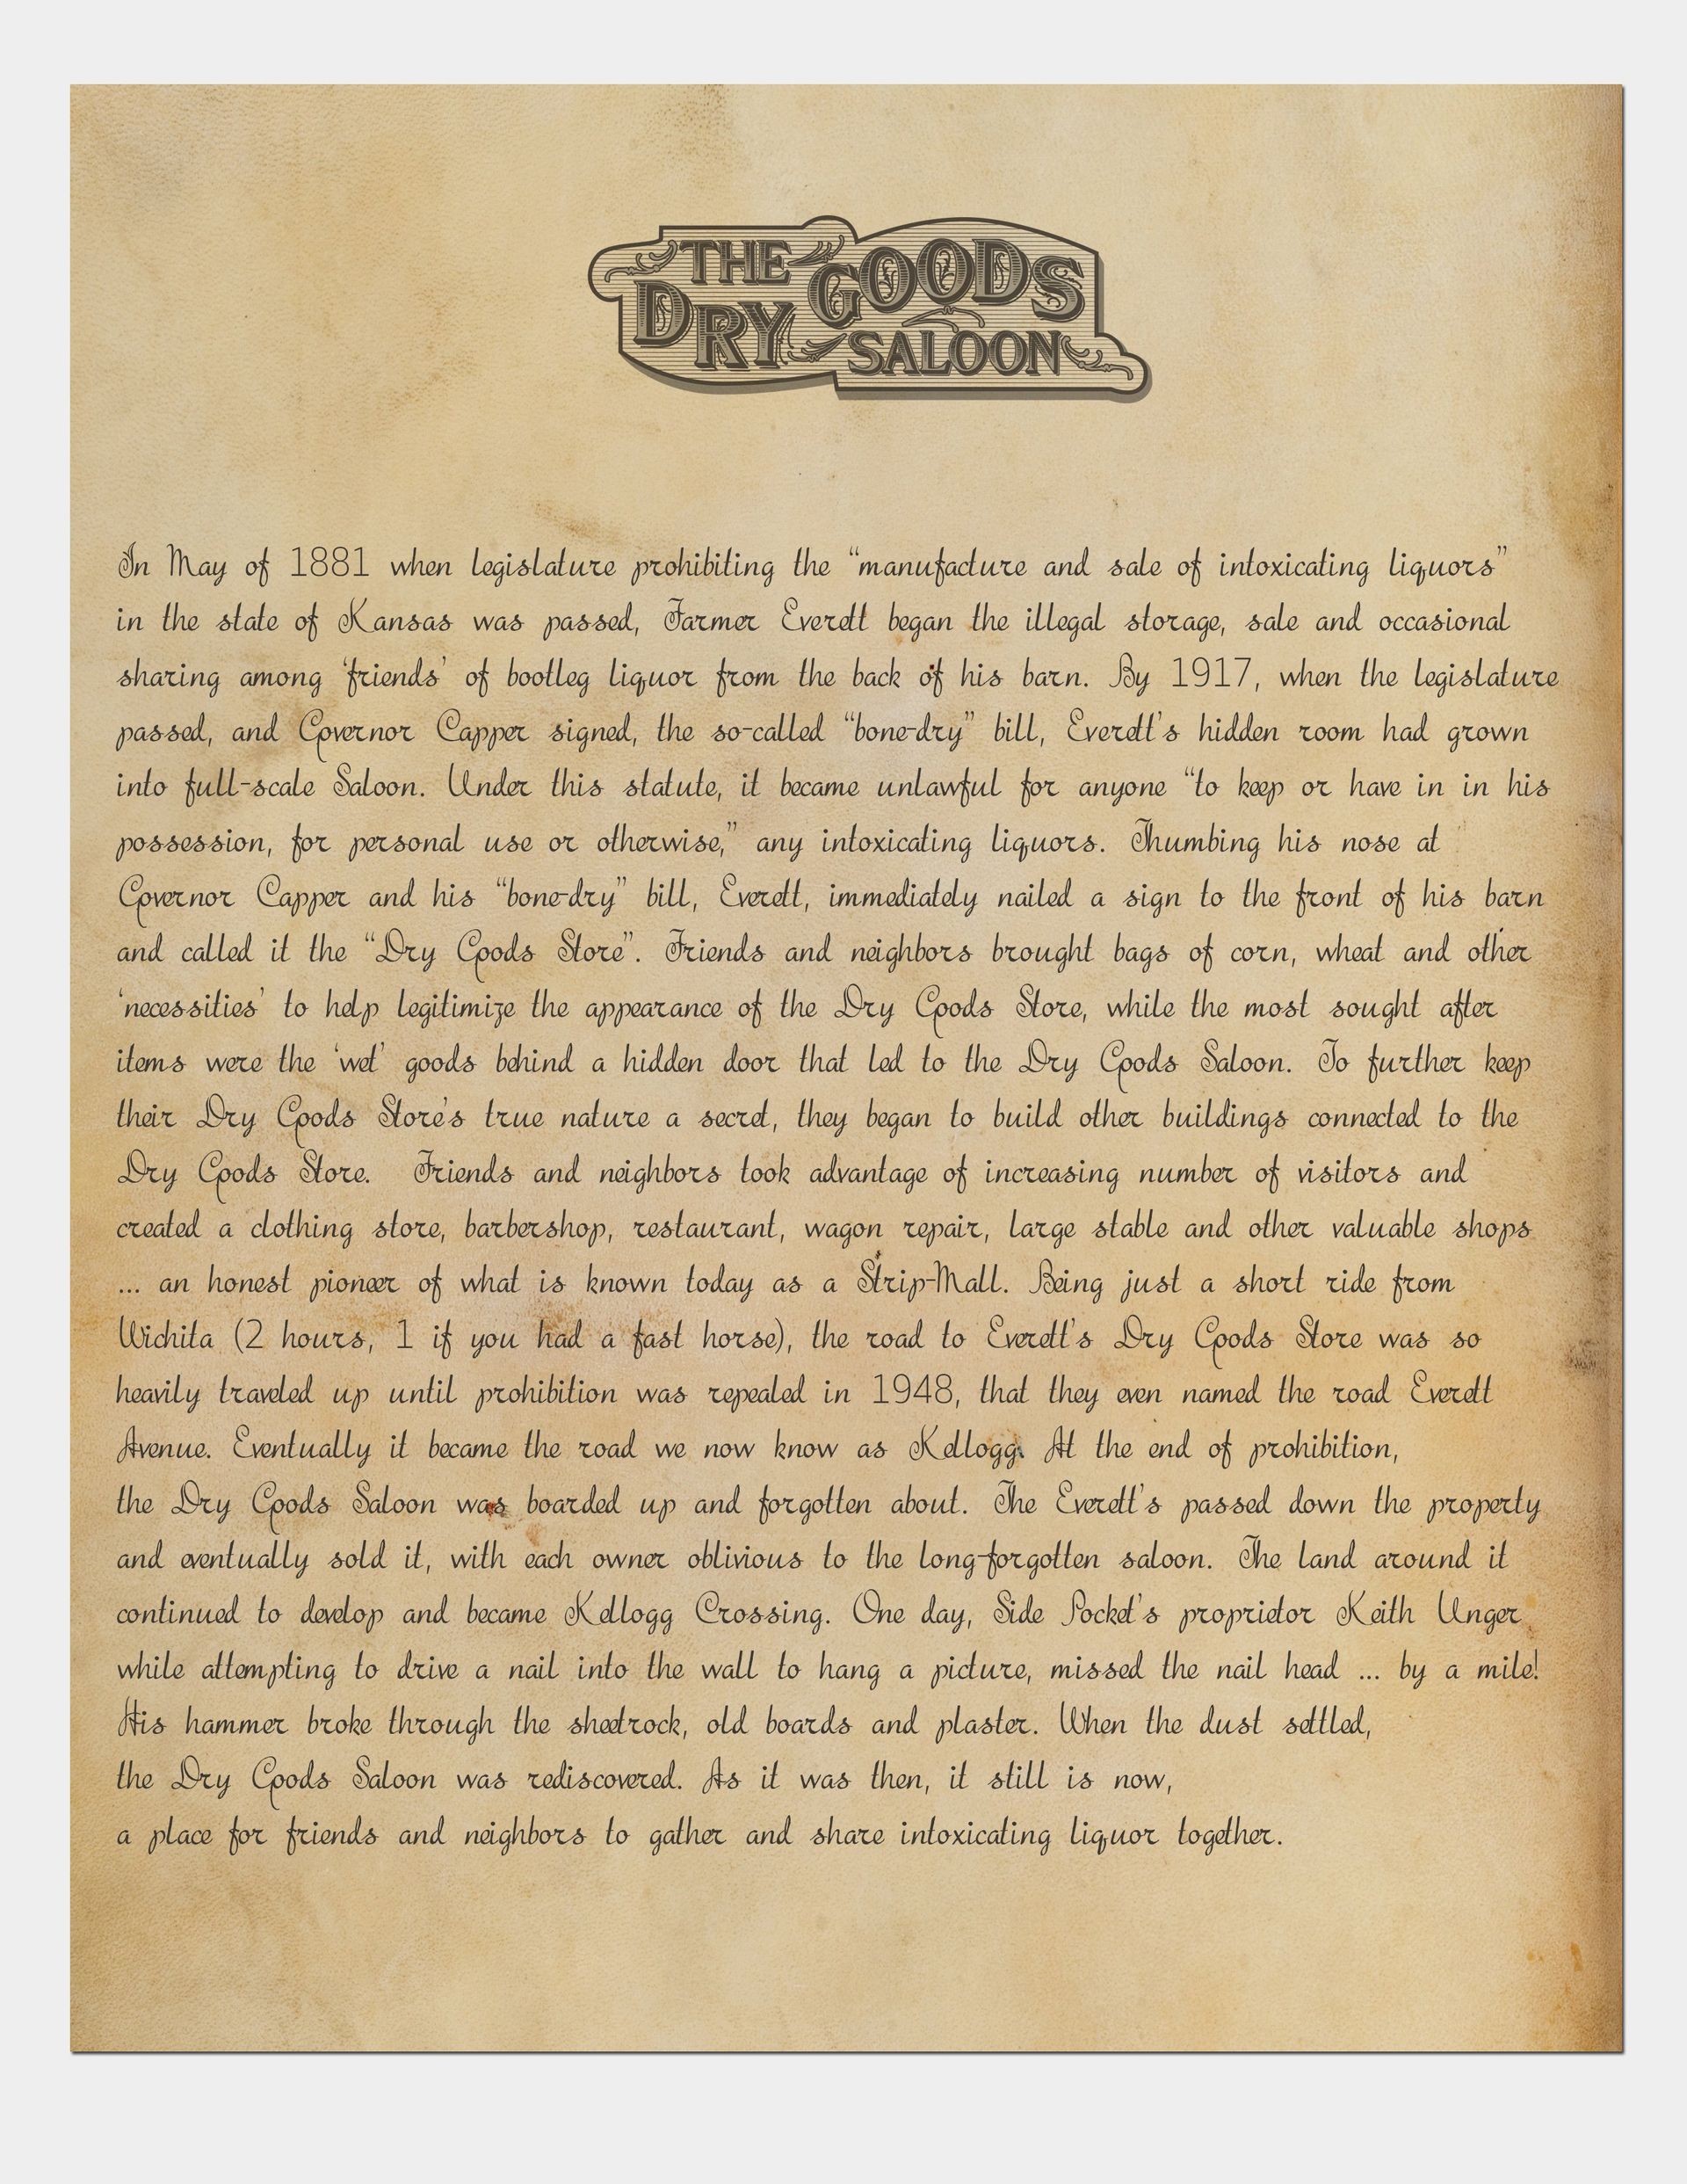 THE
DRY GOODS
SALOON
In May of 1881 when legislature prohibiting the “manufacture and sale of intoxicating liquors”
in the state of Kansas was passed, Farmer Everett began the illegal storage, sale and occasional
sharing among ‘friends’ of bootleg liquor from the back of his barn. By 1917, when the legislature
passed, and Governor Capper signed, the so-called “bone-dry” bill, Everett’s hidden room had grown
into full-scale Saloon. Under this statute, it became unlawful for anyone “to keep or have in in his
possession, for personal use or otherwise,” any intoxicating liquors. Thumbing his nose at
Governor Capper and his “bone-dry” bill, Everett, immediately nailed a sign to the front of his barn
and called it the “Dry Goods Store”. Friends and neighbors brought bags of corn, wheat and other
‘necessities’ to help legitimize the appearance of the Dry Goods Store, while the most sought after
items were the ‘wet’ goods behind a hidden door that led to the Dry Goods Saloon. To further keep
their Dry Goods Store’s true nature a secret, they began to build other buildings connected to the
Dry Goods Store. Friends and neighbors took advantage of increasing number of visitors and
created a clothing store, barbershop, restaurant, wagon repair, large stable and other valuable shops
... an honest pioneer of what is known today as a Strip-Mall. Being just a short ride from
Wichita (2 hours, 1 if you had a fast horse), the road to Everett’s Dry Goods Store was so
heavily traveled up until prohibition was repealed in 1948, that they even named the road Everett
Avenue. Eventually it became the road we now know as Kellogg. At the end of prohibition,
the Dry Goods Saloon was boarded up and forgotten about. The Everett’s passed down the property
and eventually sold it, with each owner oblivious to the long-forgotten saloon. The land around it
continued to develop and became Kellogg Crossing. One day, Side Pocket’s proprietor Keith Unger
while attempting to drive a nail into the wall to hang a picture, missed the nail head ... by a mile!
His hammer broke through the sheetrock, old boards and plaster. When the dust settled,
the Dry Goods Saloon was rediscovered. As it was then, it still is now,
a place for friends and neighbors to gather and share intoxicating liquor together.